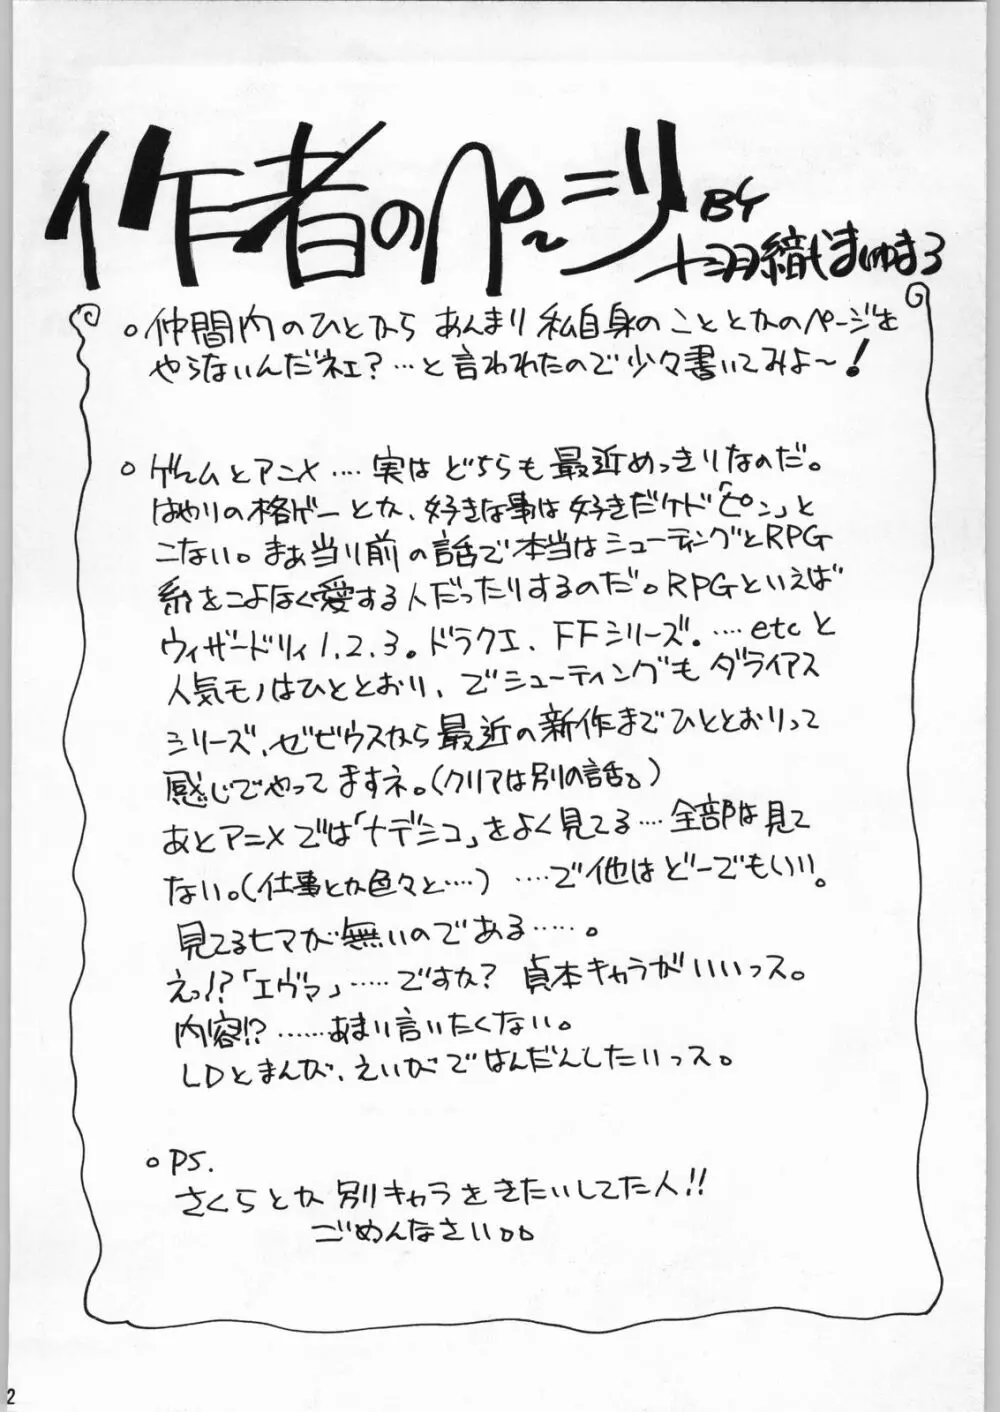 作者のページ
BY
十三月織まゆまろ
。仲間内のひとから あんまり 私自身の こととかのページを
やらないんだネェ?…と言われたので少々書いてみよ〜!
。ゲームとアニメ…. 実はどちらも最近めっきりなのだ。
はやりの格ゲーとか、好きな事は好きだケド「ピン」と
こない。まぁ当り前の話で本当はシューティングとRPG
系をこよなく愛する人だったりするのだ。RPGといえば
ウィザードリィ1.2.3。ドラクエ、FFシリーズ.….etcと
人気モノはひととおり、でシューティングもダライアス
シリーズ、ゼビウスなら最近の新作までひととおりって
感じでやってますネ。(クリアは別の話。)
あとアニメでは「ナデシコ」をよく見てる…. 全部は見て
ない。(仕事とか色々と….) ….で他はどーでもいい。
見てるヒマが無いのである…...。
えっ!?「エヴァ」…..ですか? 貞本キャラがいいっス。
内容!? …....あまり言いたくない。
LDとまんが、えいがではんだんしたいっス。
。PS.
さくらとか別キャラをきたいしてた人!!
ごめんなさい。。
2